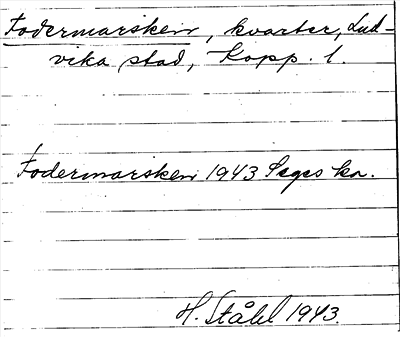 Fodermarsken, kvarter, Lud-
vika stad, Kopp. l.
Fodermarsken 1943 Seges ka.
H. Ståhl 1943.